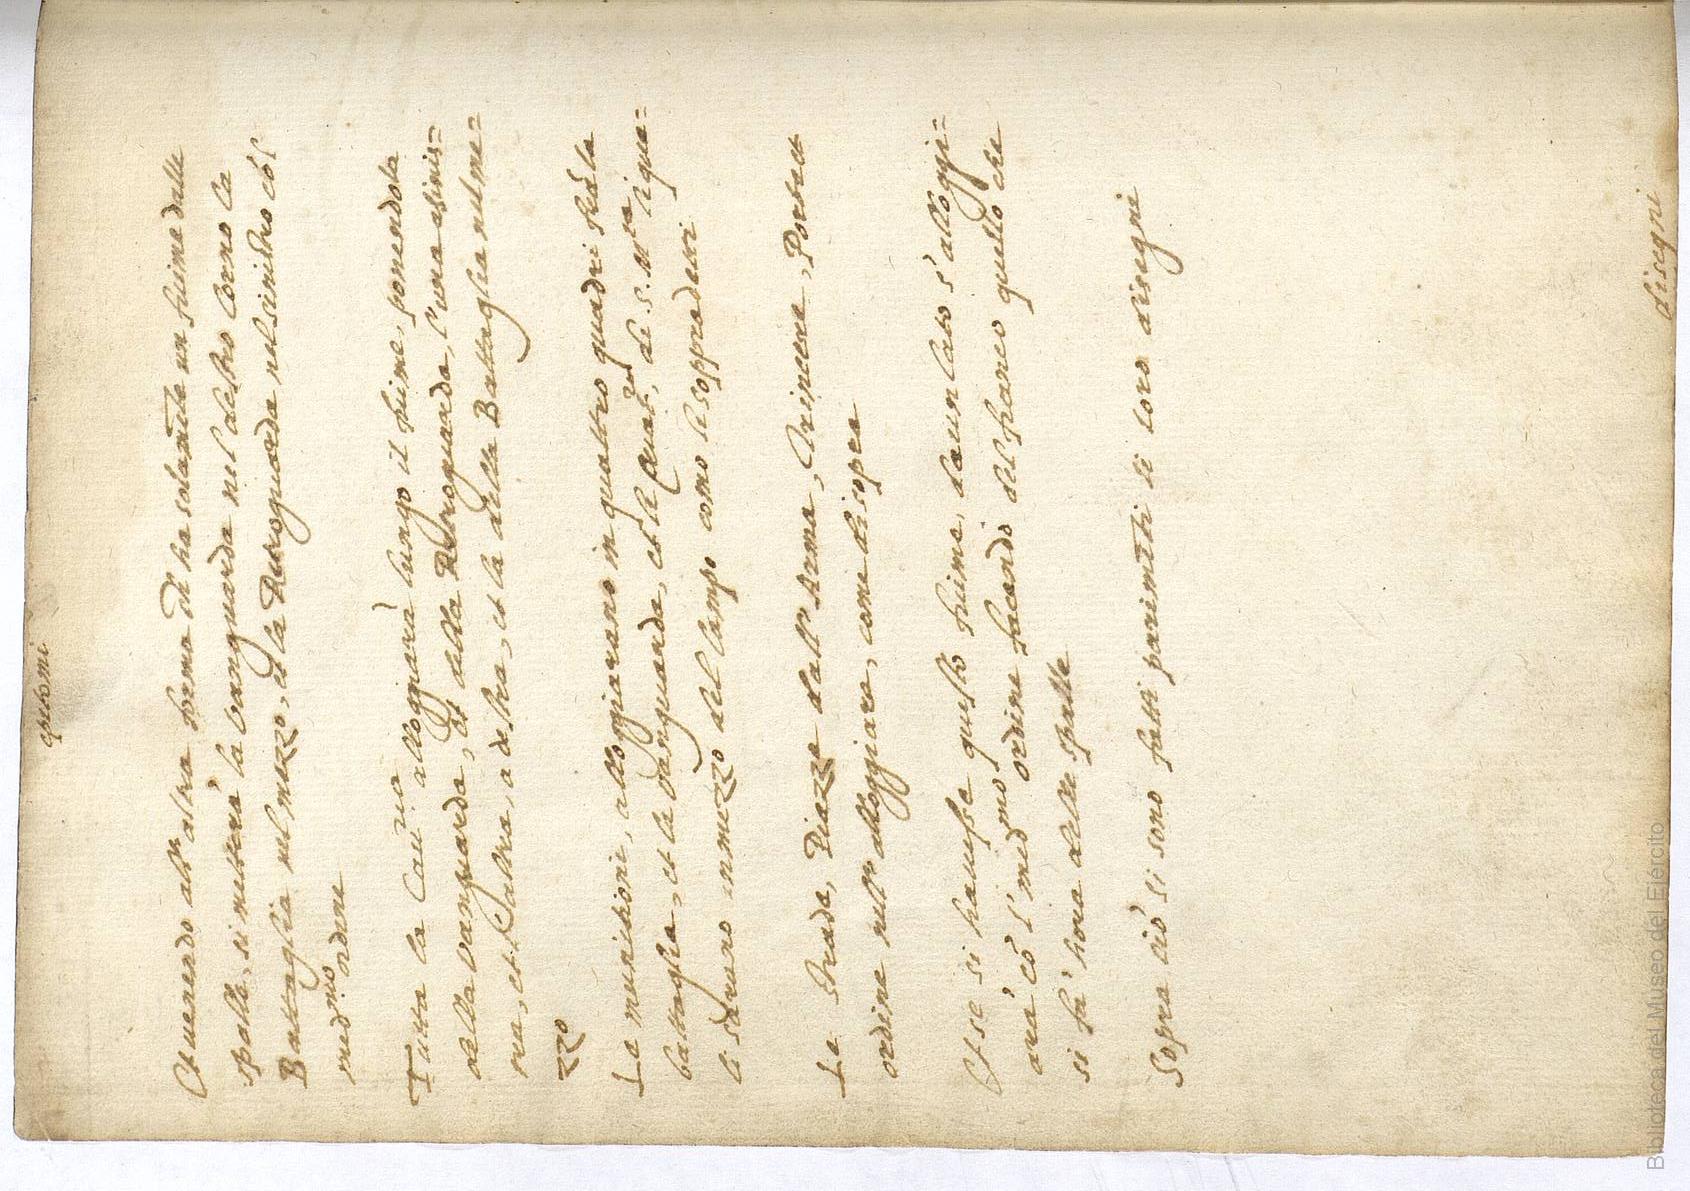 Et uenendo all'altra forma ch' ha solam̃te un fiume dalle
spalle, si metterà la Vanguarda nel destro Corno la
Battaglia nel mezzo, et la Retroguarda nel sinistro cõl
med.mo ordine
Tutta la Cau.ria alloggiarà lungo il fiume, ponendola
della Vanguarda, et della Retroguarda, l'una a sinis=
tra, et l'altra, a destra, et la della Battaglia nel me=
zzo
Le munitioni, alloggiarano in quattro quadri fra la
battaglia, et la Vanguarda, et le di S. M.tà li qua=
li sarano in mezzo del Campo como li sopradetti
Le Strade, Piazze dall'Arma, Trincere,
ordine nell'alloggiare, come di sopra
Et se si hauesse questo fiume, da un lato s'alloggi=
arà cõ l'med.mo ordine facendo del fianco quello che
si fà hora delle spalle
Sopra ciò si sono fatti parim̃ti li loro disegni
disegni
Biblioteca del Museo del Ejército